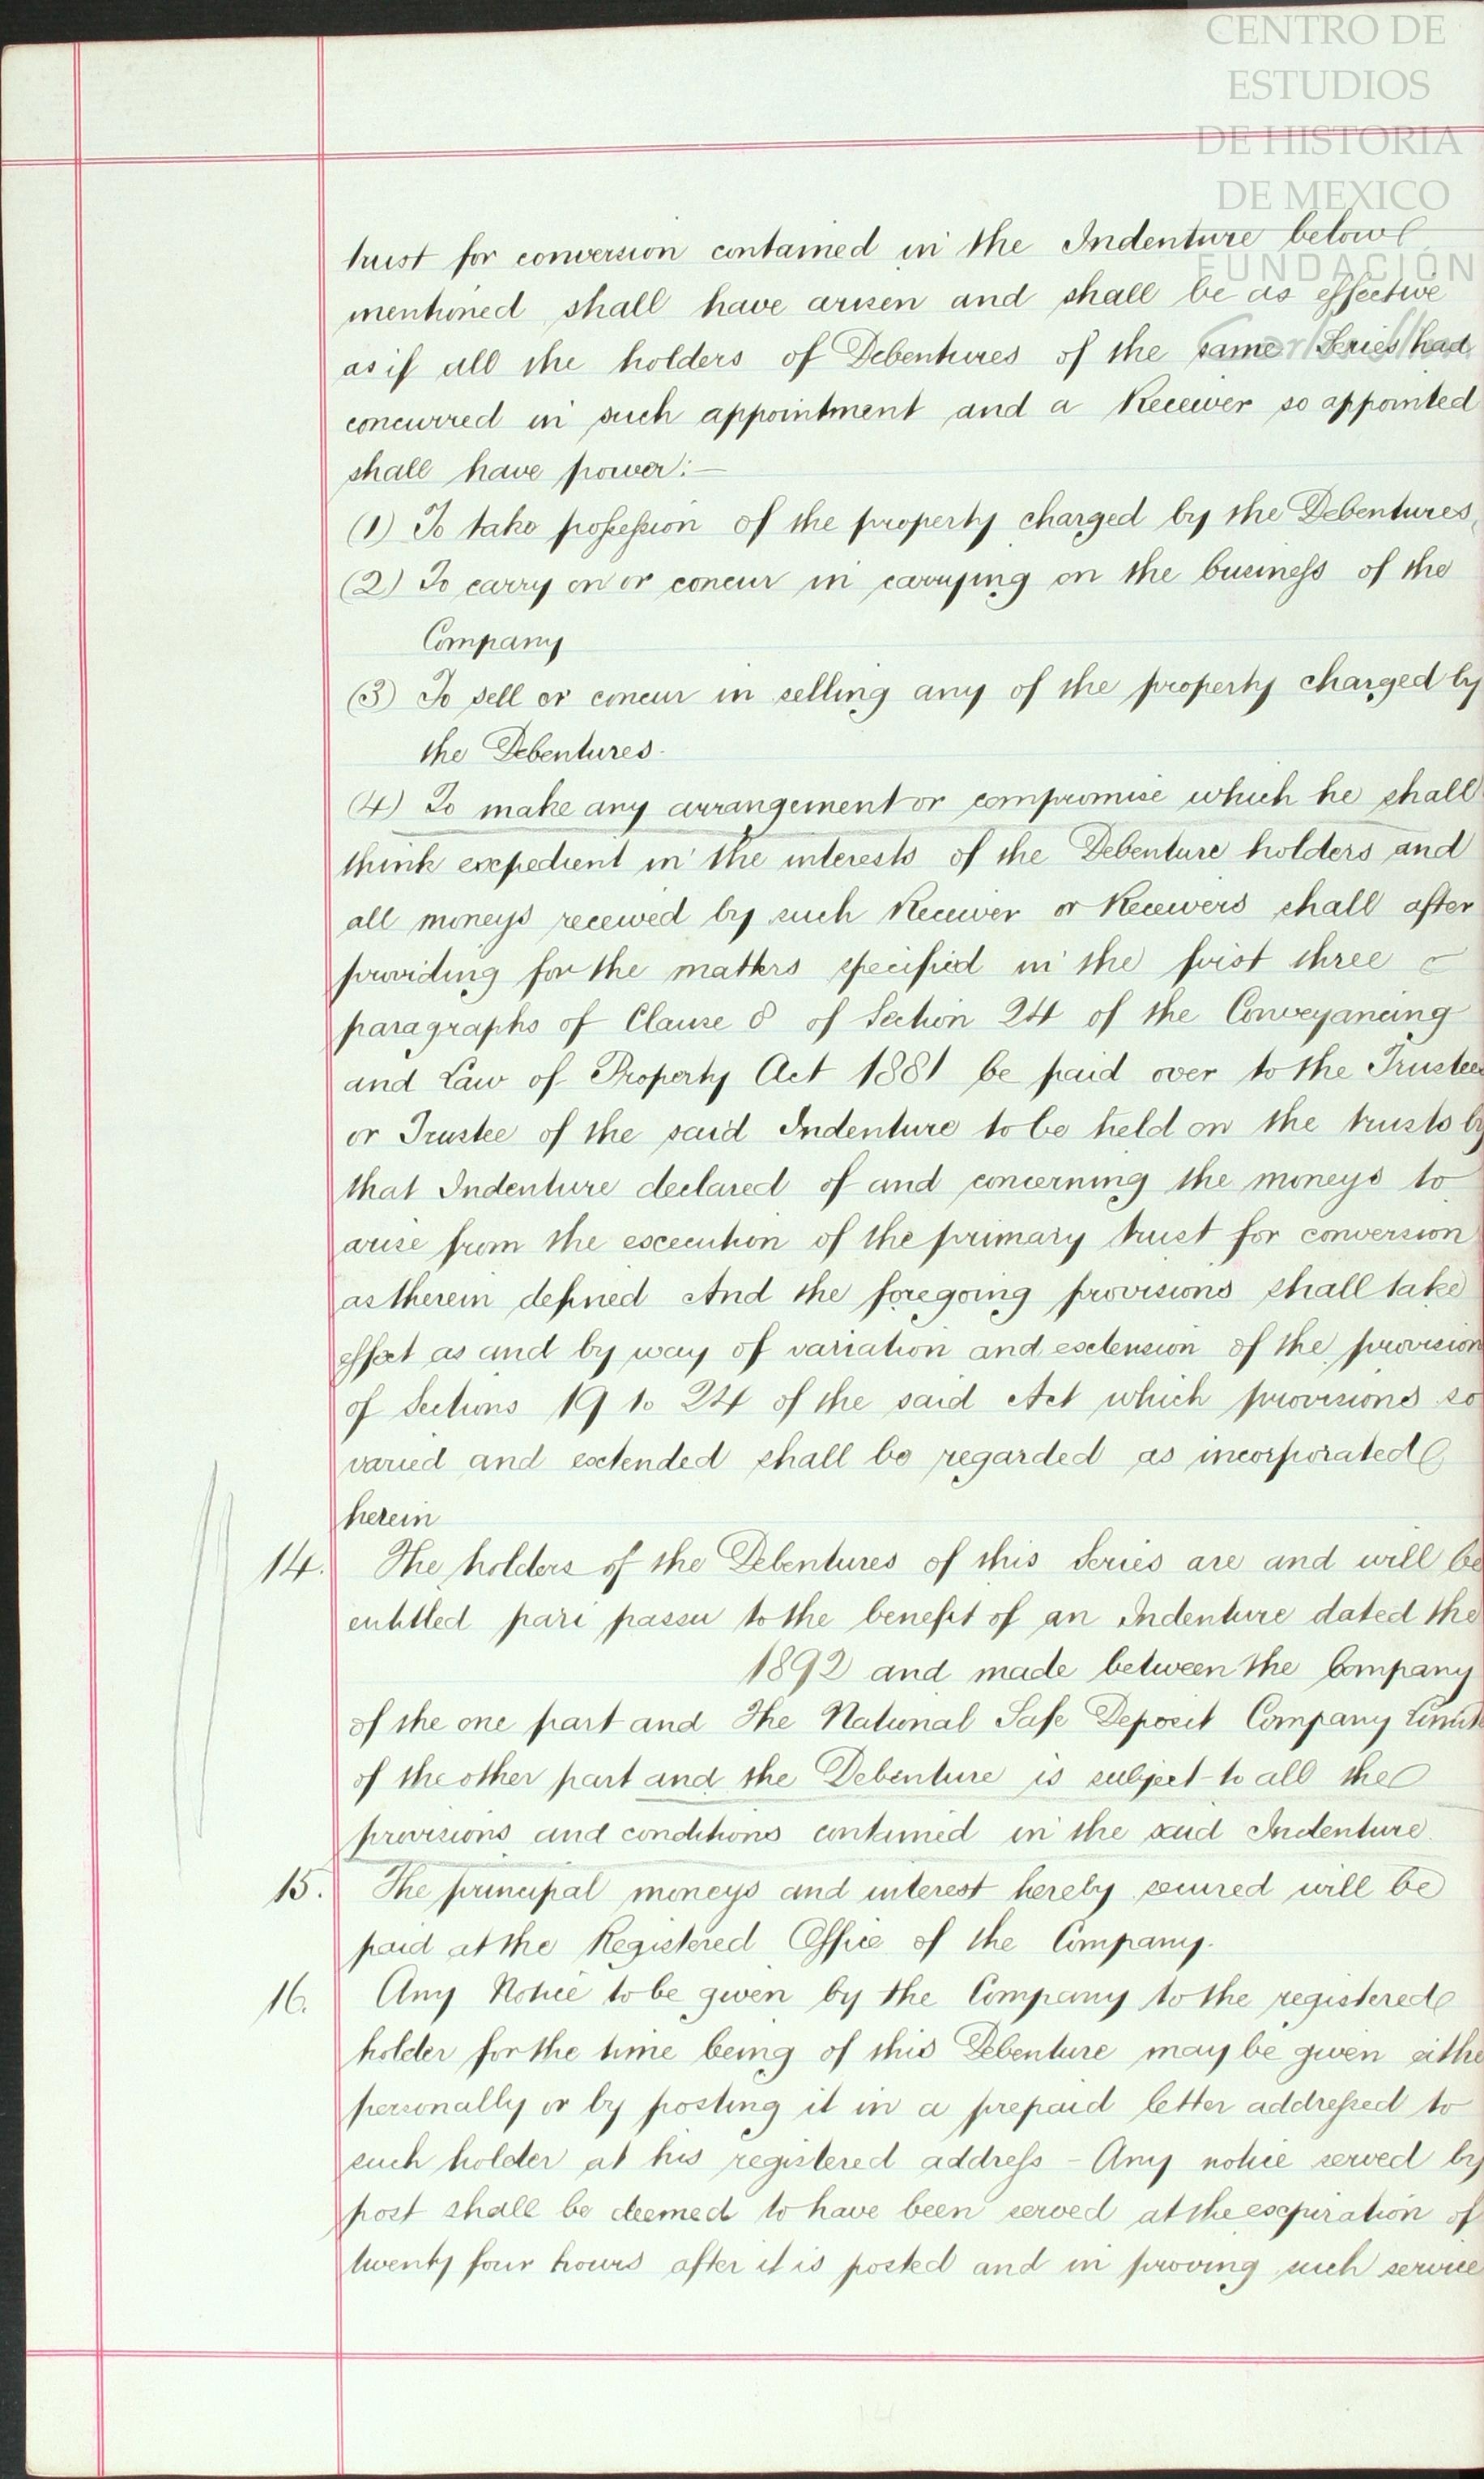 CENTRO DE
ESTUDIOS
DE HISTORIA
DE MEXICO
FUNDACIÓN
trust for conversion contained in the Indenture below
mentioned shall have arisen and shall be as effective
as if all the holders of Debentures of the same Series had
concurred in such appointment and a Receiver so appointed
shall have power:—
(1) To take possession of the property charged by the Debentures,
(2) To carry on or concur in carrying on the business of the
Company
(3) To sell or concur in selling any of the property charged by
the Debentures.
(4) To make any arrangement or compromise which he shall
think expedient in the interests of the Debenture holders and
all moneys received by such Receiver or Receivers shall after
providing for the matters specified in the first three
paragraphs of Clause 8 of Section 24 of the Conveyancing
and Law of Property Act 1881 be paid over to the Trustees
or Trustee of the said Indenture to be held on the trusts by
that Indenture declared of and concerning the moneys to
arise from the execution of the primary trust for conversion
as therein defined And the foregoing provisions shall take
effect as and by way of variation and extension of the provision
of Sections 19 to 24 of the said Act which provisions so
varied and extended shall be regarded as incorporated
herein
14. The holders of the Debentures of this Series are and will be
entitled pari passu to the benefit of an Indenture dated the
1892 and made between the Company
of the one part and The National Safe Deposit Company Limite
of the other part and the Debenture is subject to all the
provisions and conditions contained in the said Indenture.
15. The principal moneys and interest hereby secured will be
paid at the Registered Office of the Company.
16. Any Notice to be given by the Company to the registered
holder for the time being of this Debenture may be given eithe
personally or by posting it in a prepaid letter addressed to
such holder at his registered address - Any notice served by
post shall be deemed to have been served at the expiration of
twenty four hours after it is posted and in proving such service